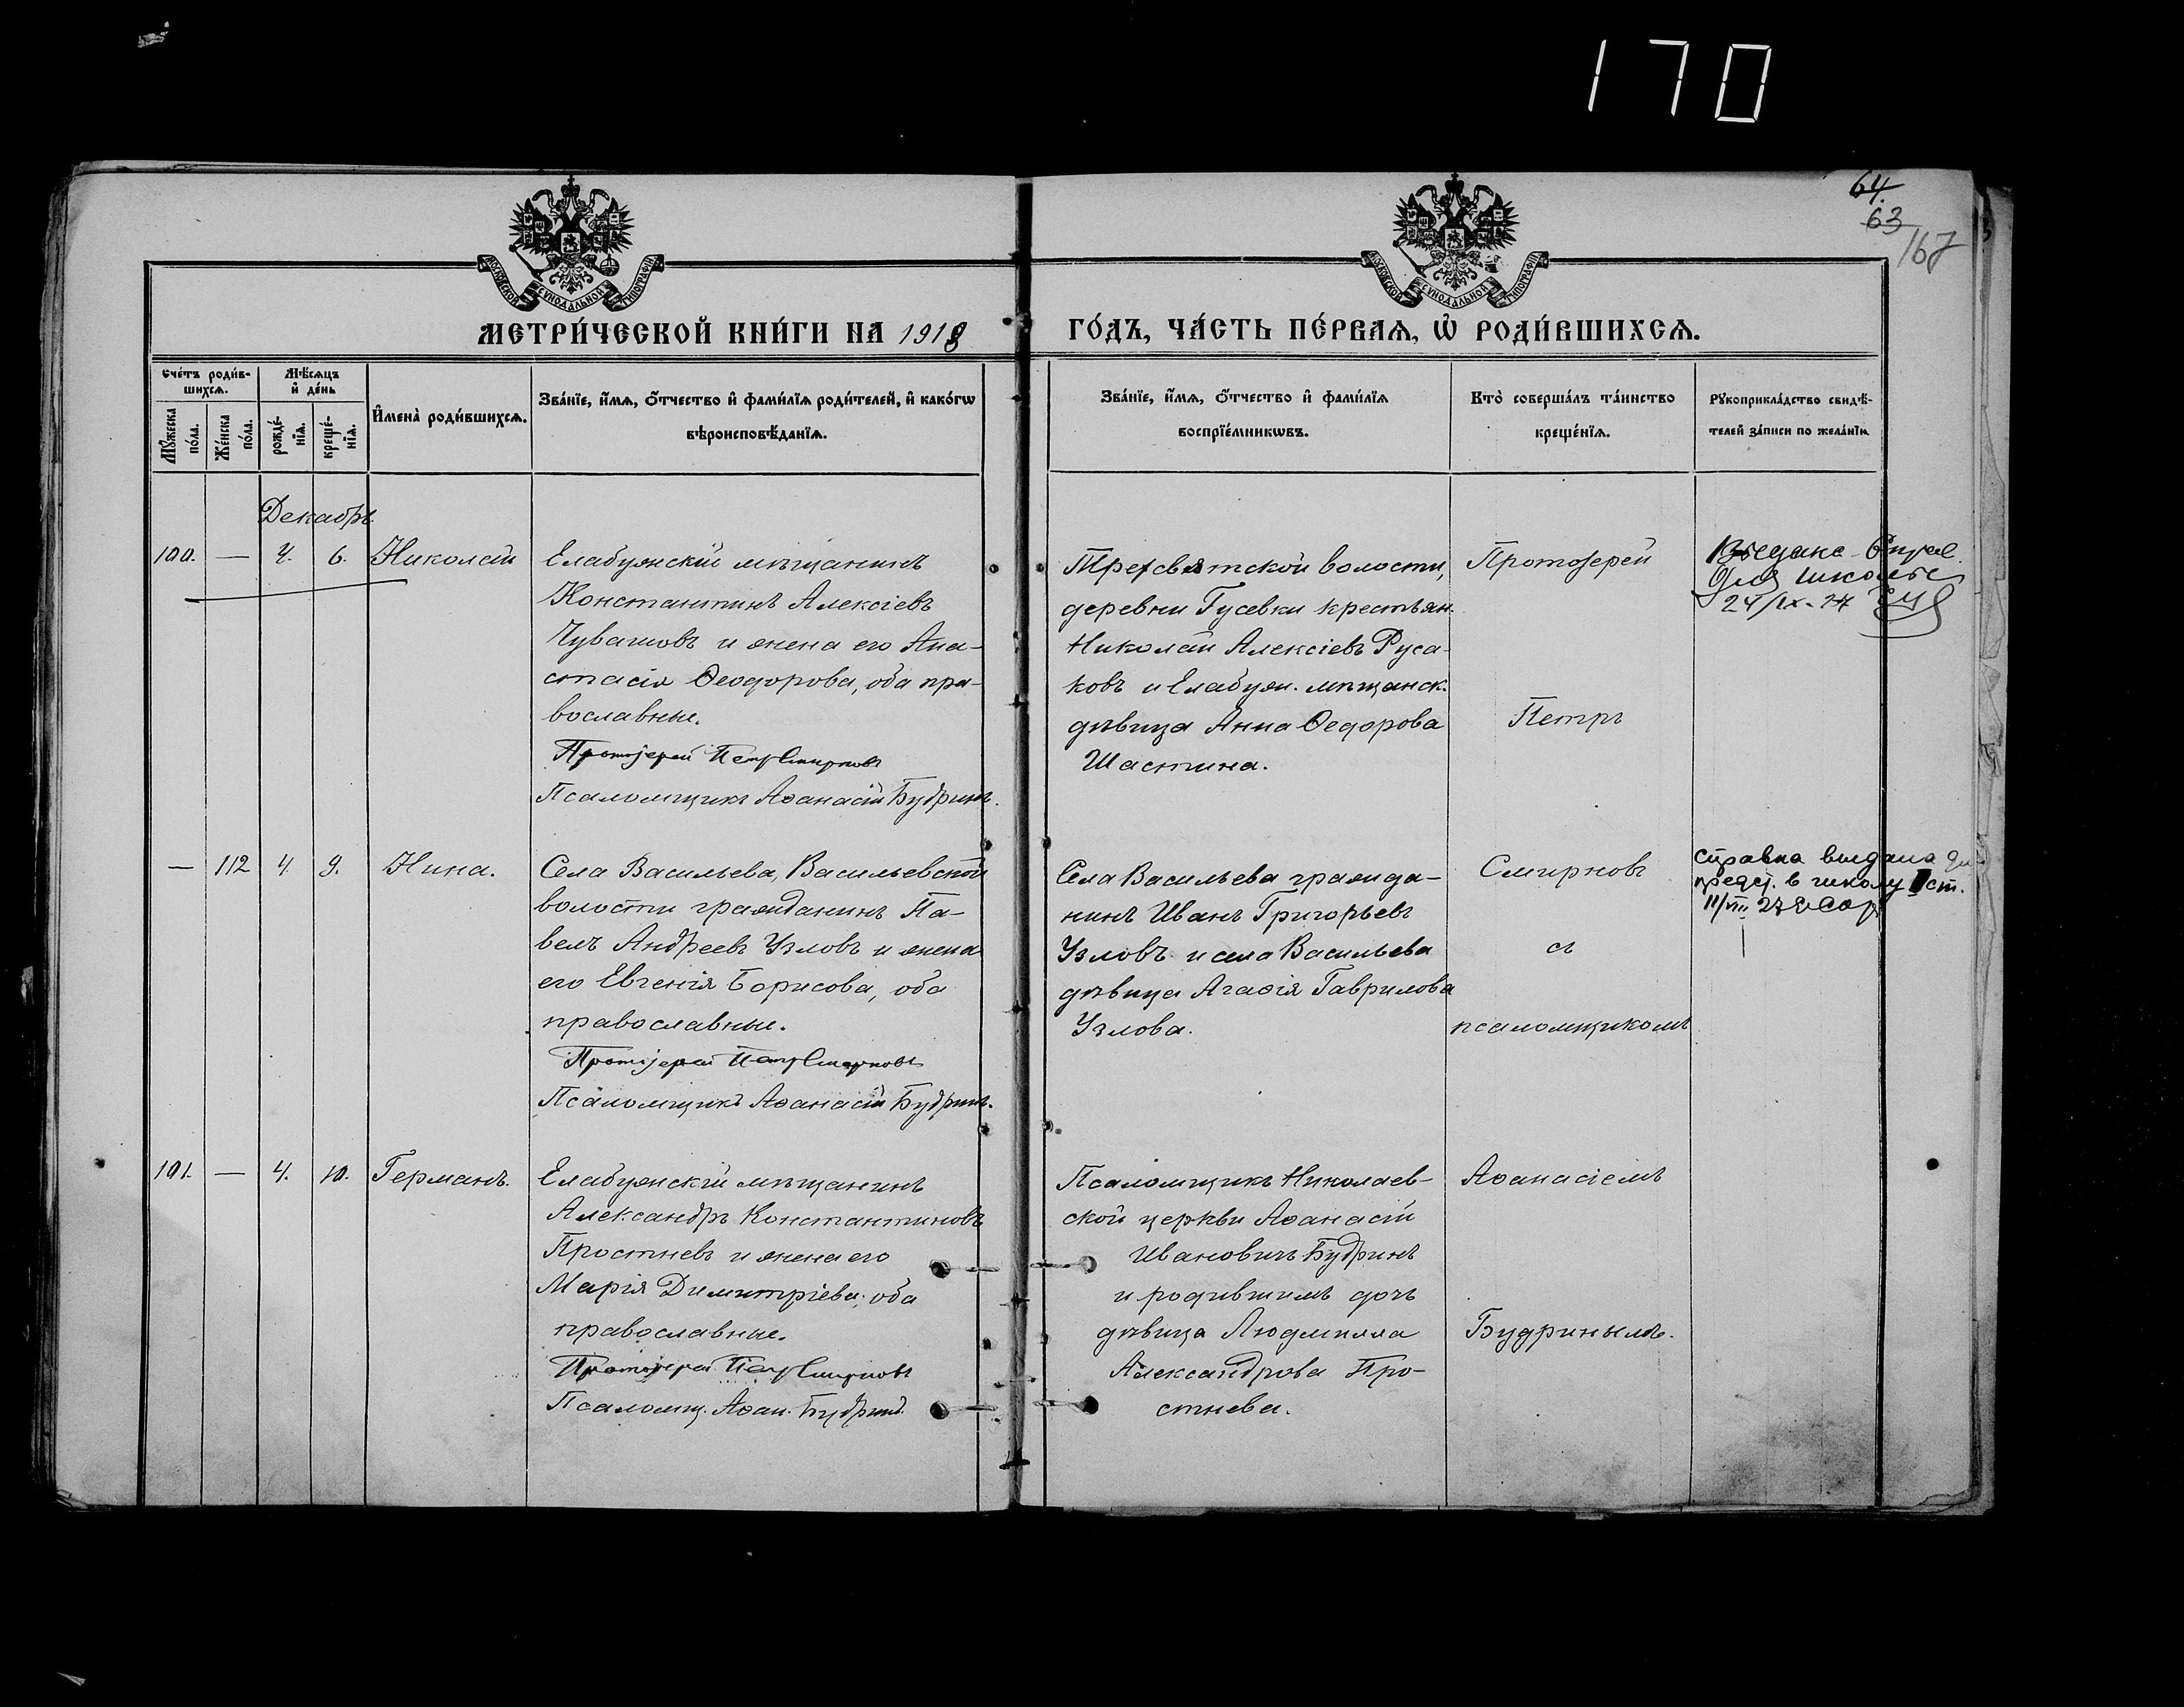 170
64.
63
167
МОСКОВСКОЙ СѴНОДАЛЬНОЙ ТИПОГРАФІИ
МОСКОВСКОЙ СѴНОДАЛЬНОЙ ТИПОГРАФІИ
МЕТРИ́ЧЕСКОЙ КНИ́ГИ НА 1918
ГО́ДЪ, ЧА́СТЬ ПЕ́РВАЯ, Ѡ҆ РОДИ́ВШИХСЯ.
Сче́тъ роди́в-
шихся.
Мꙋ́жеска
по́ла.
Же́нска
по́ла.
Мѣ́сяцъ
и҆ де́нь
рожде́-
нїя.
креще́-
нїя.
И҆мена̀ роди́вшихся.
Зва́нїе, и҆́мя, ѻ҆́тчество и҆ фами́лїя роди́телей, и҆ како́гѡ
вѣроисповѣ́данїя.
Зва́нїе, и҆́мя, ѻ҆́тчество и҆ фами́лїя
воспрїе́мникѡвъ.
Кто̀ соверша́лъ та́инство
креще́нїя.
Рꙋкоприкла́дство свидѣ́-
телей за́писи по жела́нїю.
Декабрь
100. — 4. 6. Николай
Елабужскій мѣщанинъ
Константинъ Алексіевъ
Чувашовъ и жена его Ана-
стасія Ѳеодорова, оба пра-
вославные.
Протоіерей Петръ Смирновъ
Псаломщикъ Аѳанасій Будринъ.
Трехсвятской волости,
деревни Гусевки крестьян.
Николай Алексіевъ Руса-
ковъ и Елабуж. мѣщанск.
дѣвица Анна Ѳедорова
Шастина.
Протоіерей
Петръ
Выдана
для школы
24/IX-27
— 112 4. 9. Нина.
Села Васильева, Васильевской
волости гражданинъ Па-
велъ Андреевъ Узловъ и жена
его Евгенія Борисова, оба
православные.
Протоіерей Петръ Смирновъ
Псаломщикъ Аѳанасій Будринъ.
Села Васильева гражда-
нинъ Иванъ Григорьевъ
Узловъ и села Васильева
дѣвица Агаѳія Гаврилова
Узлова.
Смирновъ
съ
псаломщикомъ
Справка выдана для
предст. в школу I ст.
11/VIII 27
101. — 4. 10. Германъ.
Елабужскій мѣщанинъ
Александръ Константиновъ
Простневъ и жена его
Марія Димитріева, оба
православные.
Протоіерей Петръ Смирновъ
Псаломщ. Аѳан. Будринъ.
Псаломщикъ Николаев-
ской церкви Аѳанасій
Ивановичъ Будринъ
и родившимъ дочь
дѣвица Людмила
Александрова Про-
стнева.
Аѳанасіемъ
Будринымъ.